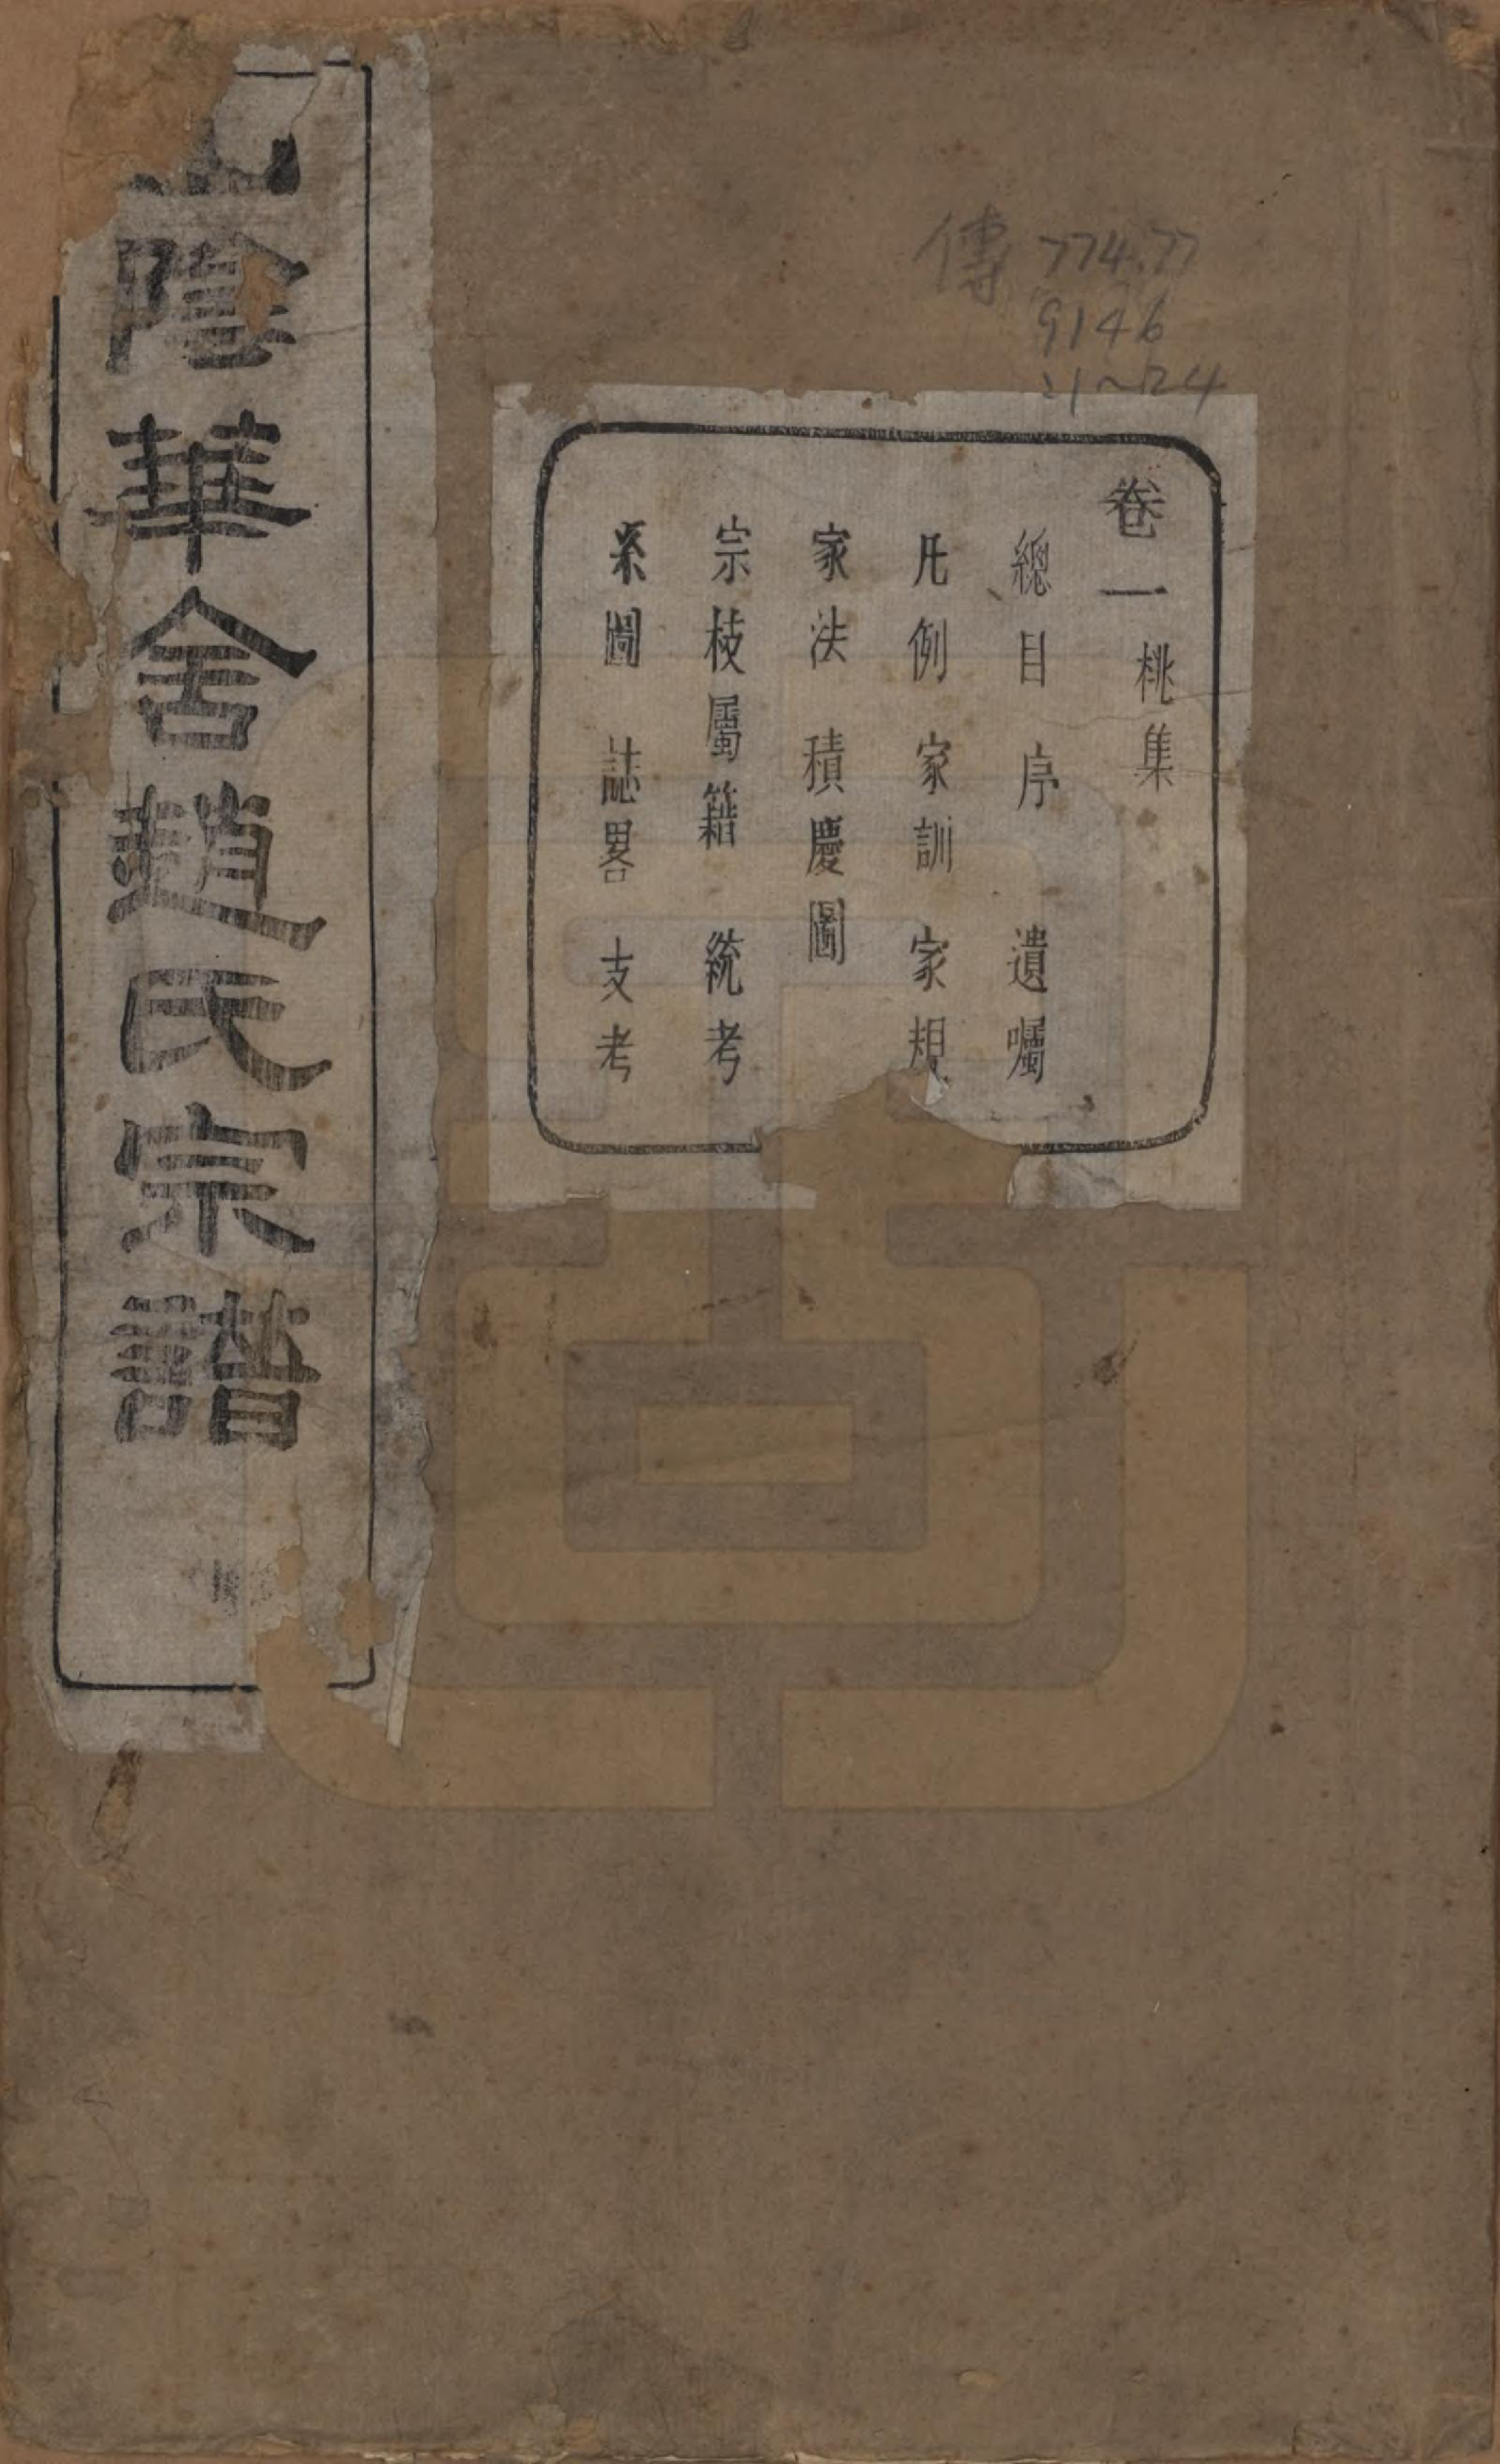 傳 774.77
9146
:1~24
卷一 桃集
總目 序 遺囑
凡例 家訓 家規
家法 積慶圖
宗枝屬籍 統考
系圖 誌畧 支考
山陰華舍趙氏宗譜